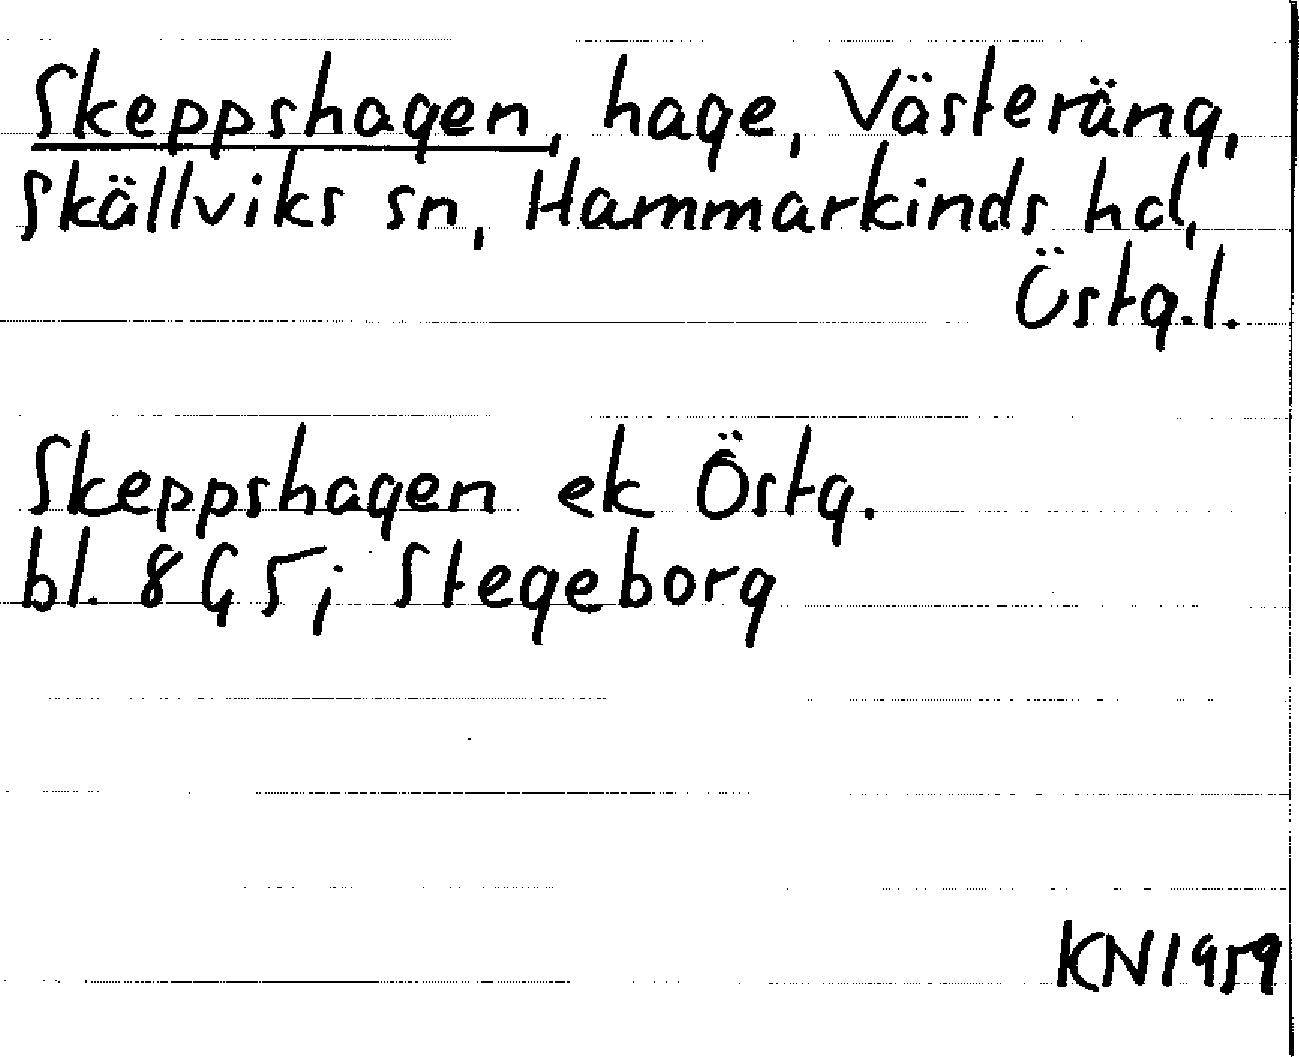 Skeppshagen, hage, Västeräng,
Skällviks sn, Hammarkinds hd,
Östg.l.
Skeppshagen ek Östg.
bl. 8G5; Stegeborg
KN1959